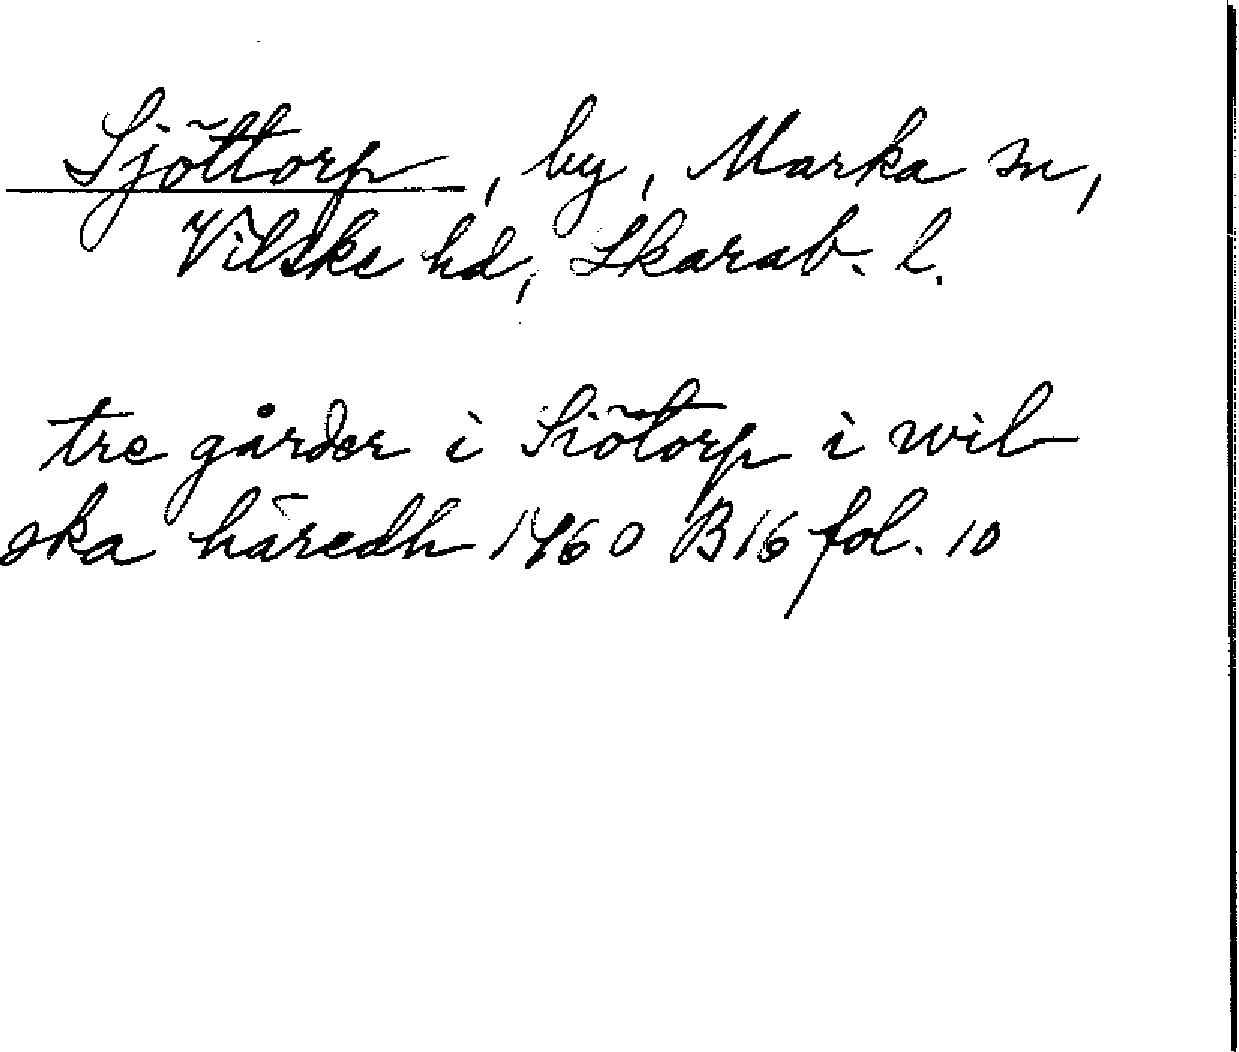 Sjöttorp, by, Marka sn,
Vilske hd, Skarab. l.
tre gårder i Siötorp i wil
ska häredh 1460 B16 fol. 10